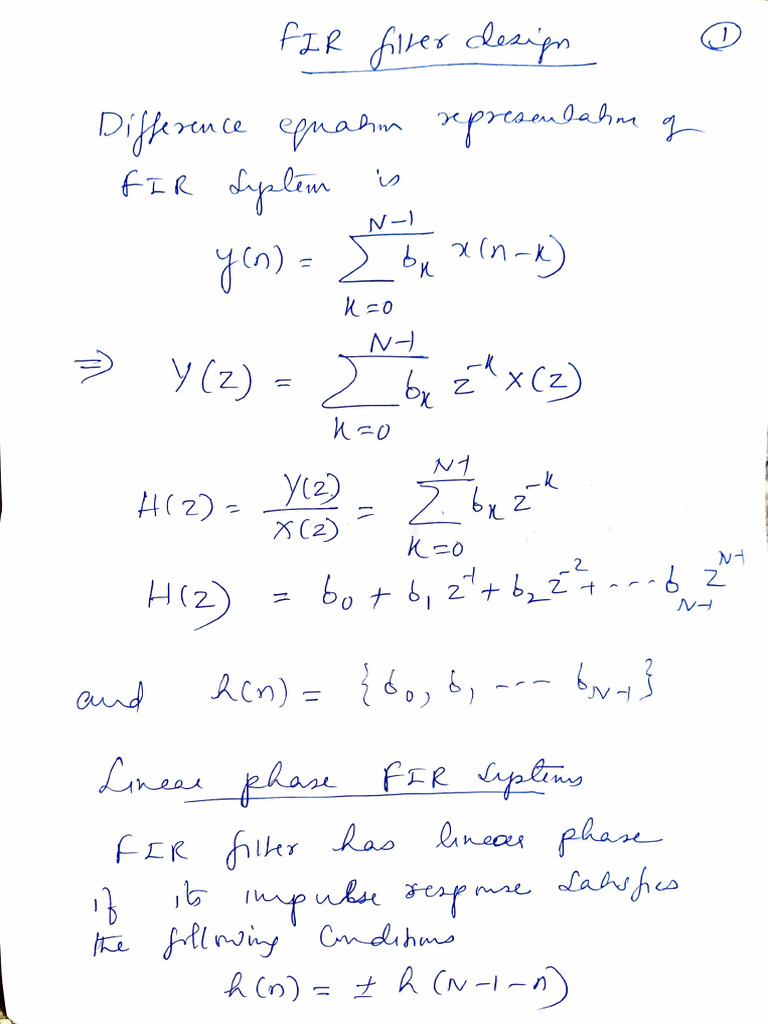 FIR filter design ①
Difference equation representation of
FIR system is
y(n) = Σ_{k=0}^{N-1} b_k x(n-k)
⇒ Y(z) = Σ_{k=0}^{N-1} b_k z^{-k} X(z)
H(z) = Y(z)/X(z) = Σ_{k=0}^{N-1} b_k z^{-k}
H(z) = b_0 + b_1 z^{-1} + b_2 z^{-2} + ---- b_{N-1} z^{N-1}
and h(n) = {b_0, b_1 ---- b_{N-1}}
Linear phase FIR systems
FIR filter has linear phase
if its impulse response satisfies
the following Conditions
h(n) = ± h(N-1-n)